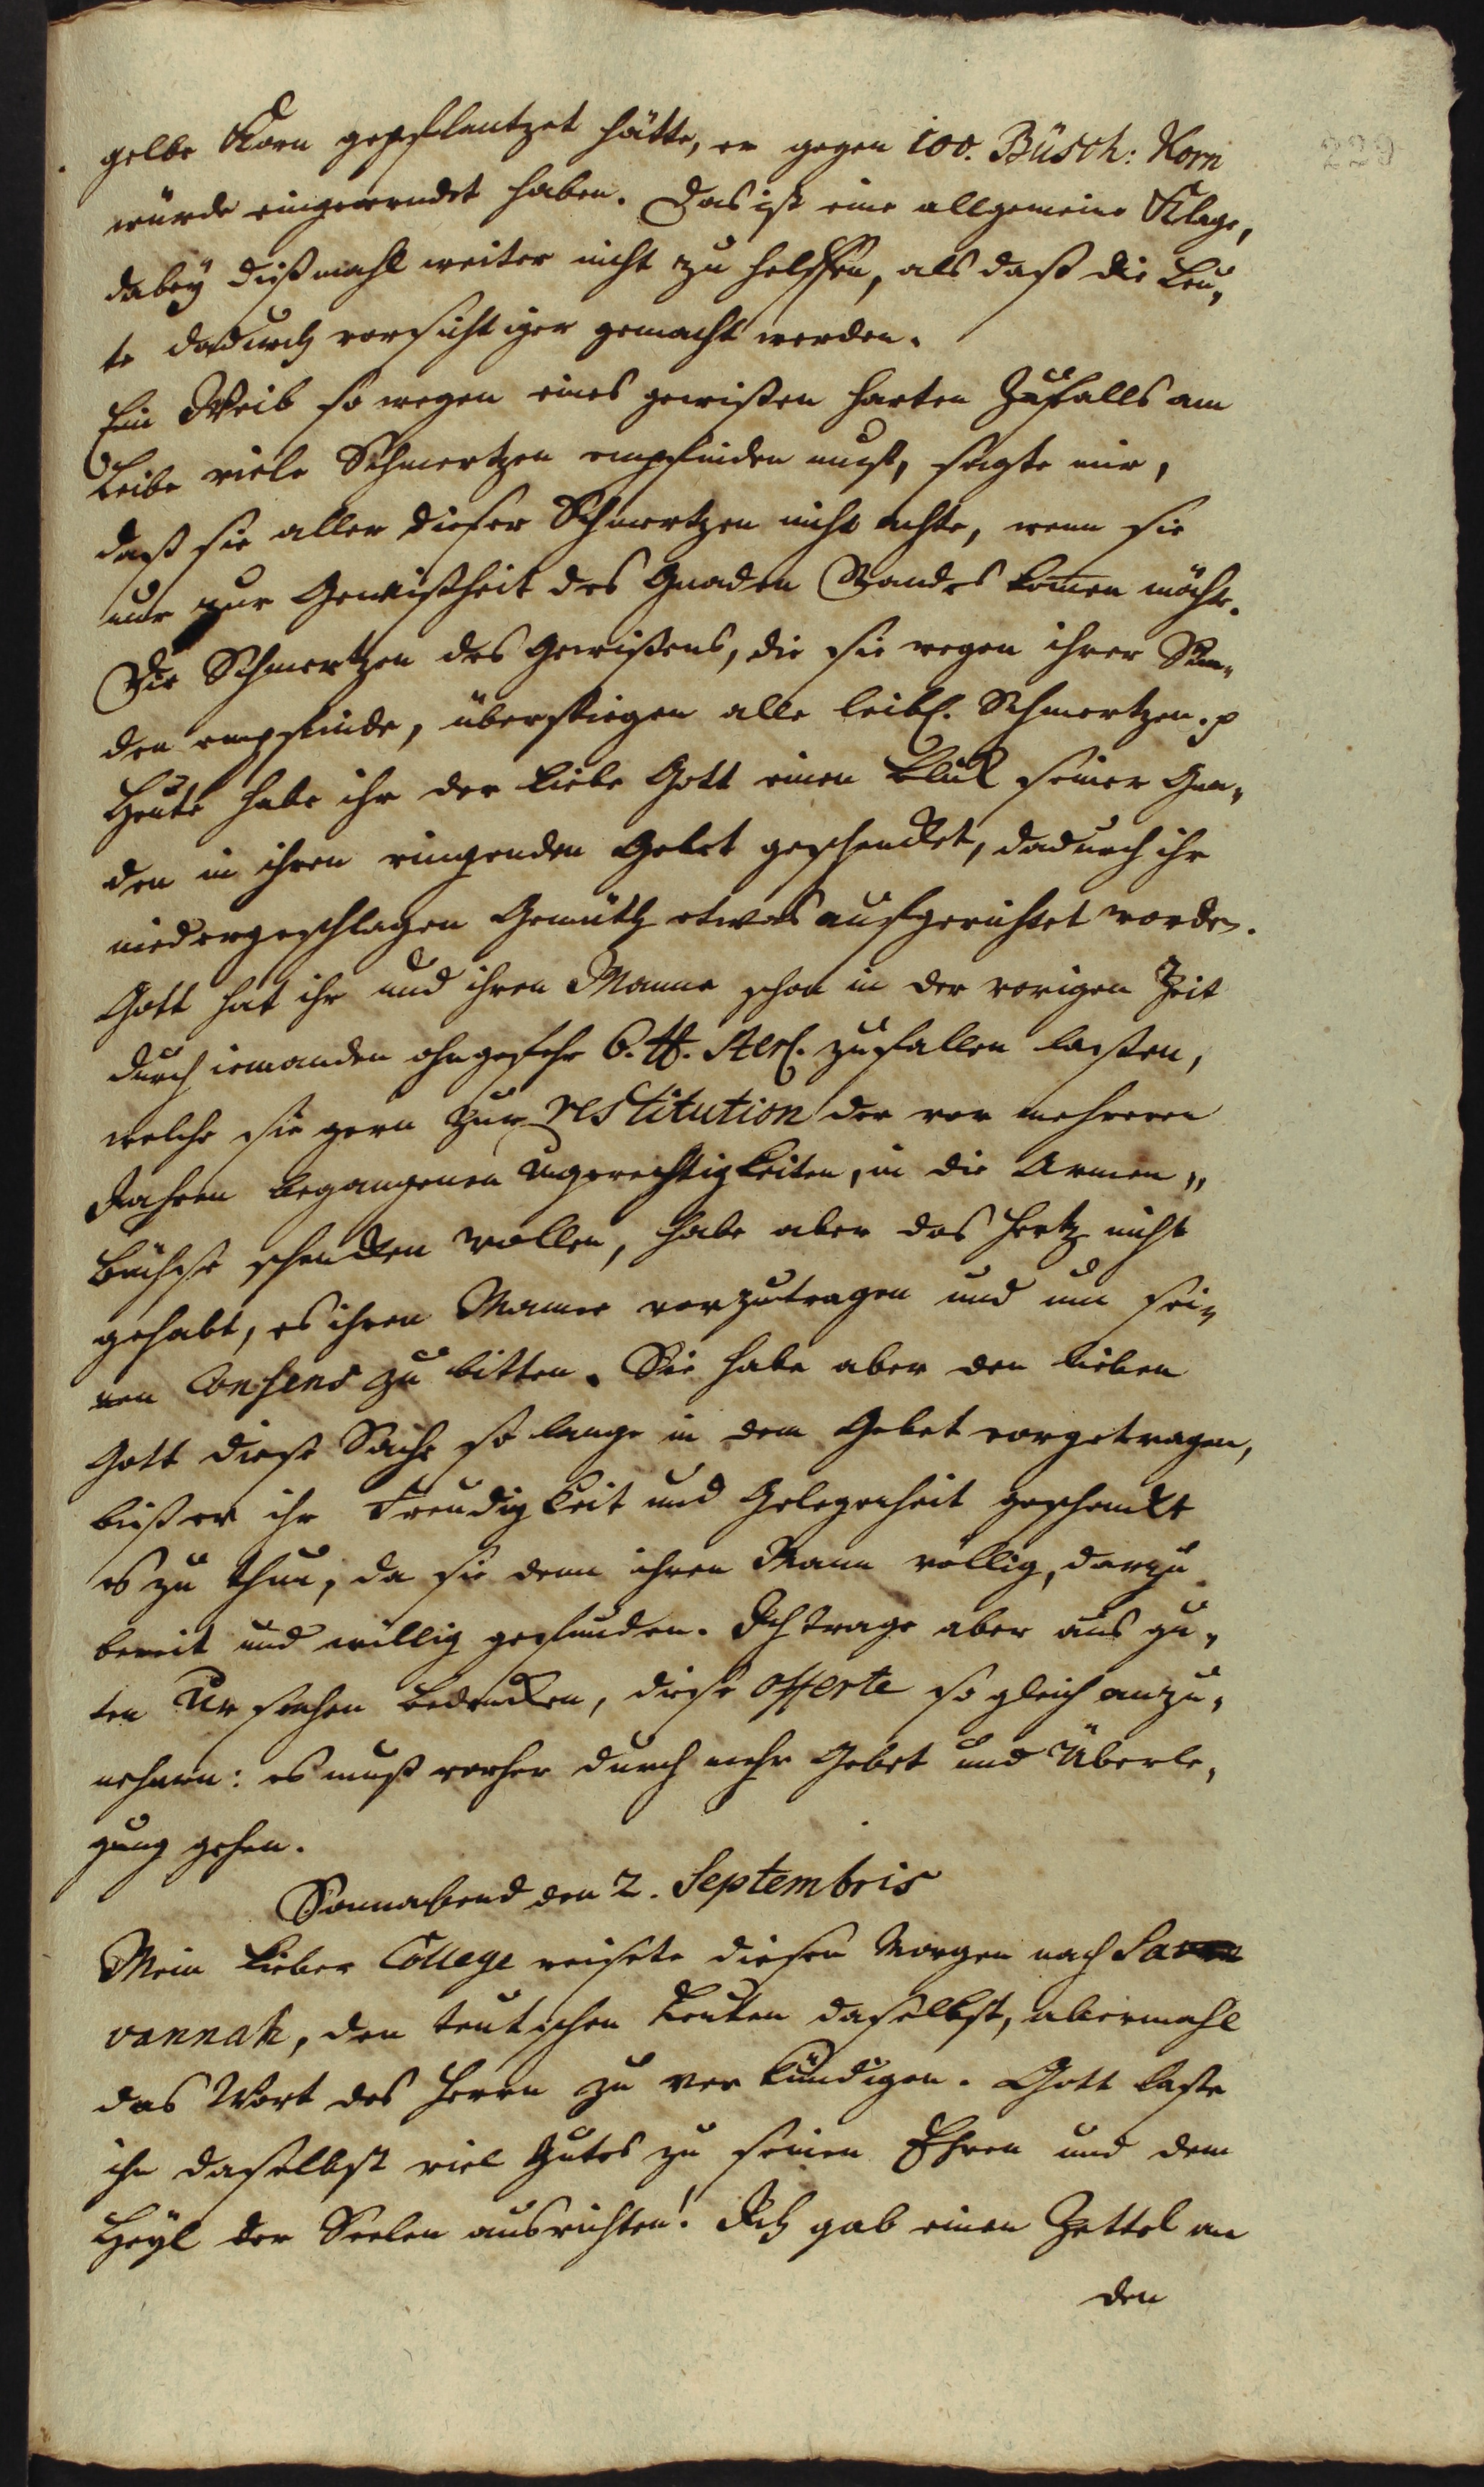 229
gelbe Korn gepflantzet hätte, er gegen 100. Büsch: Korn
würde eingeerndet haben. Das ist eine allgemeine Klage,
dabey dißmahl weiter nicht zu helffen, als daß die Leu„
te dadurch vorsichtiger gemacht werden.
Ein Weib so wegen eines gewißen harten Zufalls am
Leibe viele Schmertzen empfinden muß, sagte mir,
daß sie aller dieser Schmertzen nicht achte, wenn sie
nur zur Gewißheit des Gnaden Standes komen möchte.
Die Schmertzen des Gewißens, die sie wegen ihrer Sün„
den empfinde, überstiegen alle leibl. Schmertzen. p
Heute habe ihr der liebe Gott einen Blick seiner Gna„
den in ihren ringenden Gebet geschencket, dadurch ihr
niedergeschlagen Gemüth etwas aufgerichtet worden.
Gott hat ihr und ihren Manne schon in der vorigen Zeit
durch iemanden ohngefehr 6. ℔. Sterl. zufallen laßen,
welche sie gern zur restitution der vor mehreren
Jahren begangenen Ungerechtigkeiten, in die Armen„
Büchse schencken wollen, habe aber das Hertz nicht
gehabt, es ihren Manne vorzutragen und um sei„
nen Consens zu bitten. Sie habe aber den lieben
Gott diese Sache so lange in dem Gebet vorgetragen,
biß er ihr Freudigkeit und Gelegenheit geschenckt
es zu thun, da sie denn ihren Mann völlig, darzu
bereit und willig gefunden. Ich trage aber aus gu„
ten Ursachen Bedencken, diese offerte so gleich anzu„
nehmen: es muß vorher durch mehr Gebet und Überle„
gung gehen.
Sonnabend den 2. Septembris
Mein lieber College reisete diesen Morgen nach Sa
vannah, den teutschen Leuten daselbst, abermahl
das Wort des Herrn zu verkündigen. Gott laße
ihn daselbst viel Gutes zu seinen Ehren und dem
Heyl der Seelen ausrichten! Ich gab einen Zettel an
den